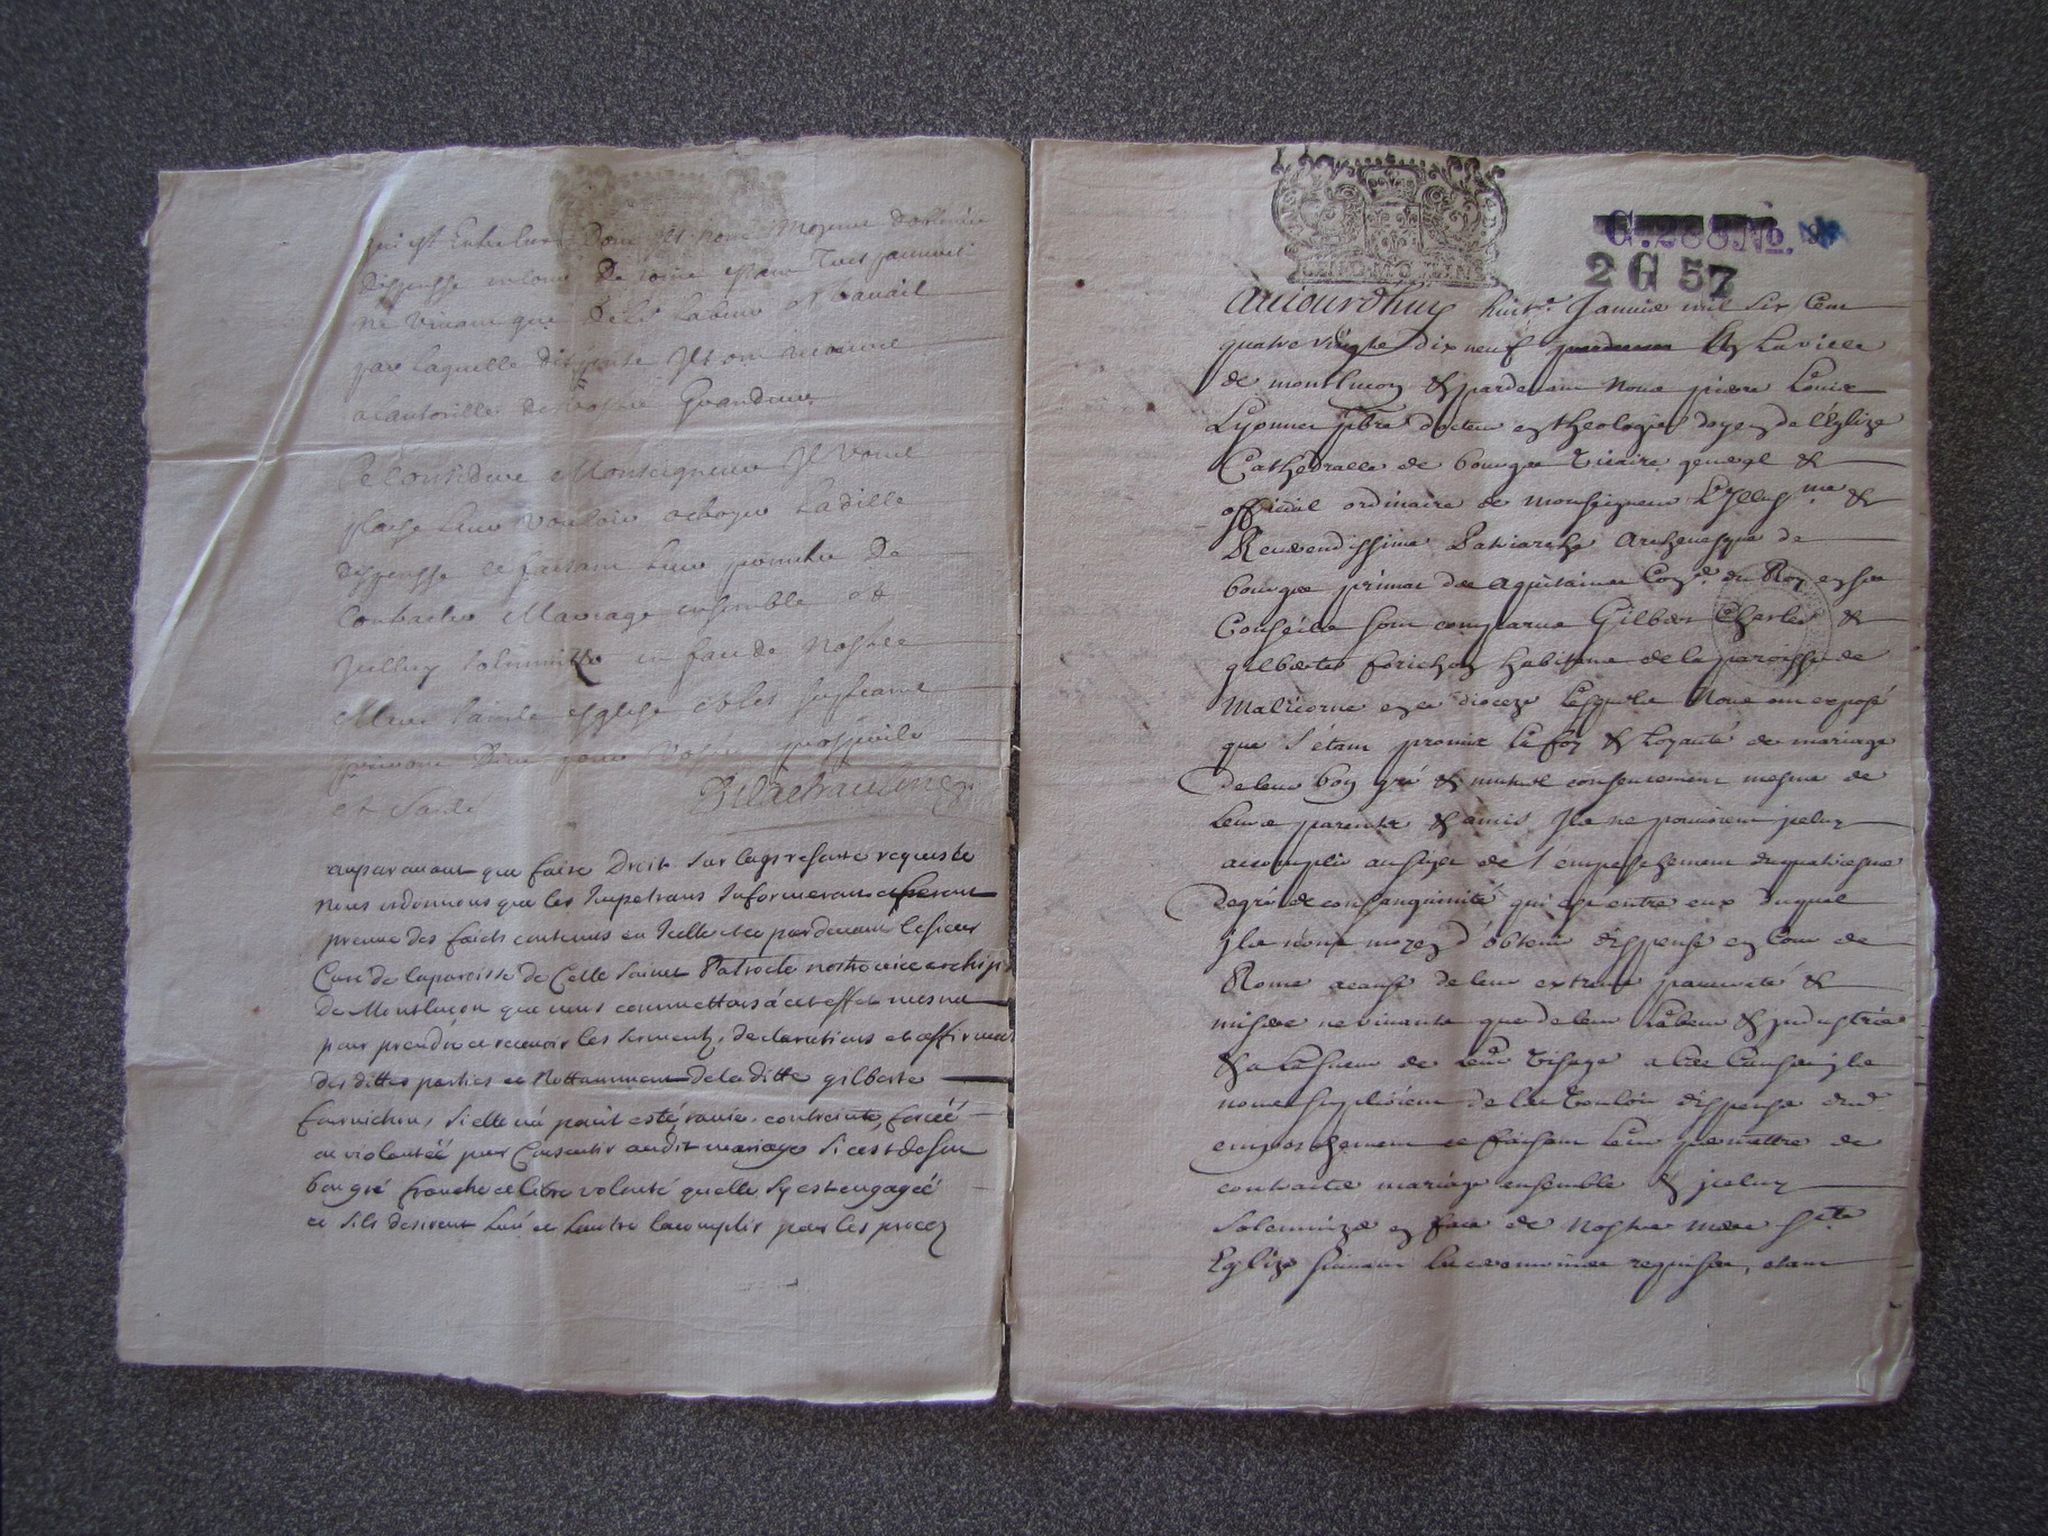 qui est entre eux Dont Ils nont Moyens dobtenir
dispensse en cour De rome estans tres pauvres
ne vivans que De leur labeur & travail
par laquelle dispense Ils ont recours
a lautoritté de Vostre Grandeur
Ce Considéré Monseigneur Il vous
plaise leur vouloir octroyer Laditte
dispensse ce faisant leur permettre De
Contracter Mariage ensemble et
Icelluy solemniser en face de Nostre
Mere Sainte esglise et les supliants
priront Dieu pour Vostre prosperité
et Santé
auparavant que faire Droit sur la presente requeste
nous ordonnons que les Impetrans Informeront et feront
preuve des faicts contenus en Icelle par devant le sieur
Curé de la paroisse de Celle Saint Patrocle nostre vice archip
de Montluçon que nous commettons à cet effet mesme
pour prendre et recevoir les serments, declarations et affirma
des dittes parties et Nottamment de la ditte gilberte
fourichon, si elle n'a point esté ravie, contrainte, forcéé
ou violentéé pour Consentir audit mariage si cest de son
bon gré franche et libre volonté quelle sy est engagéé
et sils desirent l'un et l'autre lacomplir par les procez
G.288.No.
2 G 57
GEN.D.MOULINS
Aujourdhuy huit.e Janvier mil six Cent
quatre vingts dix neuf En La ville
de montluçon & pardevant Nous pierre Louis
Lyonnet ptbre docteur en theologie doyen de l'Eglize
Cathedralle de bourges Vicaire general &
official ordinaire de monseigneur L'Illus.me &
Reverendissime Patriarche Archevesque de
bourges primat des aquitaines Con.er du Roy en ses
Conseils sont comparus Gilbert Charles &
gilberte forichon habitans de la paroisse de
Malicorne en ce dioceze Lesquels Nous ont exposé
que s'étant promis la foy & Loyauté de mariage
de leur bon gré & mutuel consentement mesme de
Leurs parents & amis Ils ne pourroient iceluy
accomplir au sujet de l'empeschement du quatriesme
degré de consanguinité qui est entre eux duquel
Ils n'ont moyen d'obtenir dispense en Cour de
Rome a cause de leur extreme pauvreté &
misere ne vivants que de leur Labeur & industrie
& a la sueur de Leur Visage a ces Causes Ils
nous suplioient de leur Vouloir dispenser dud
empeschement ce faisant leur permettre de
contracter mariage ensemble & iceluy
Solemnizer en face de Nostre mere S.te
Eglize suivant les ceremonies requises, etant